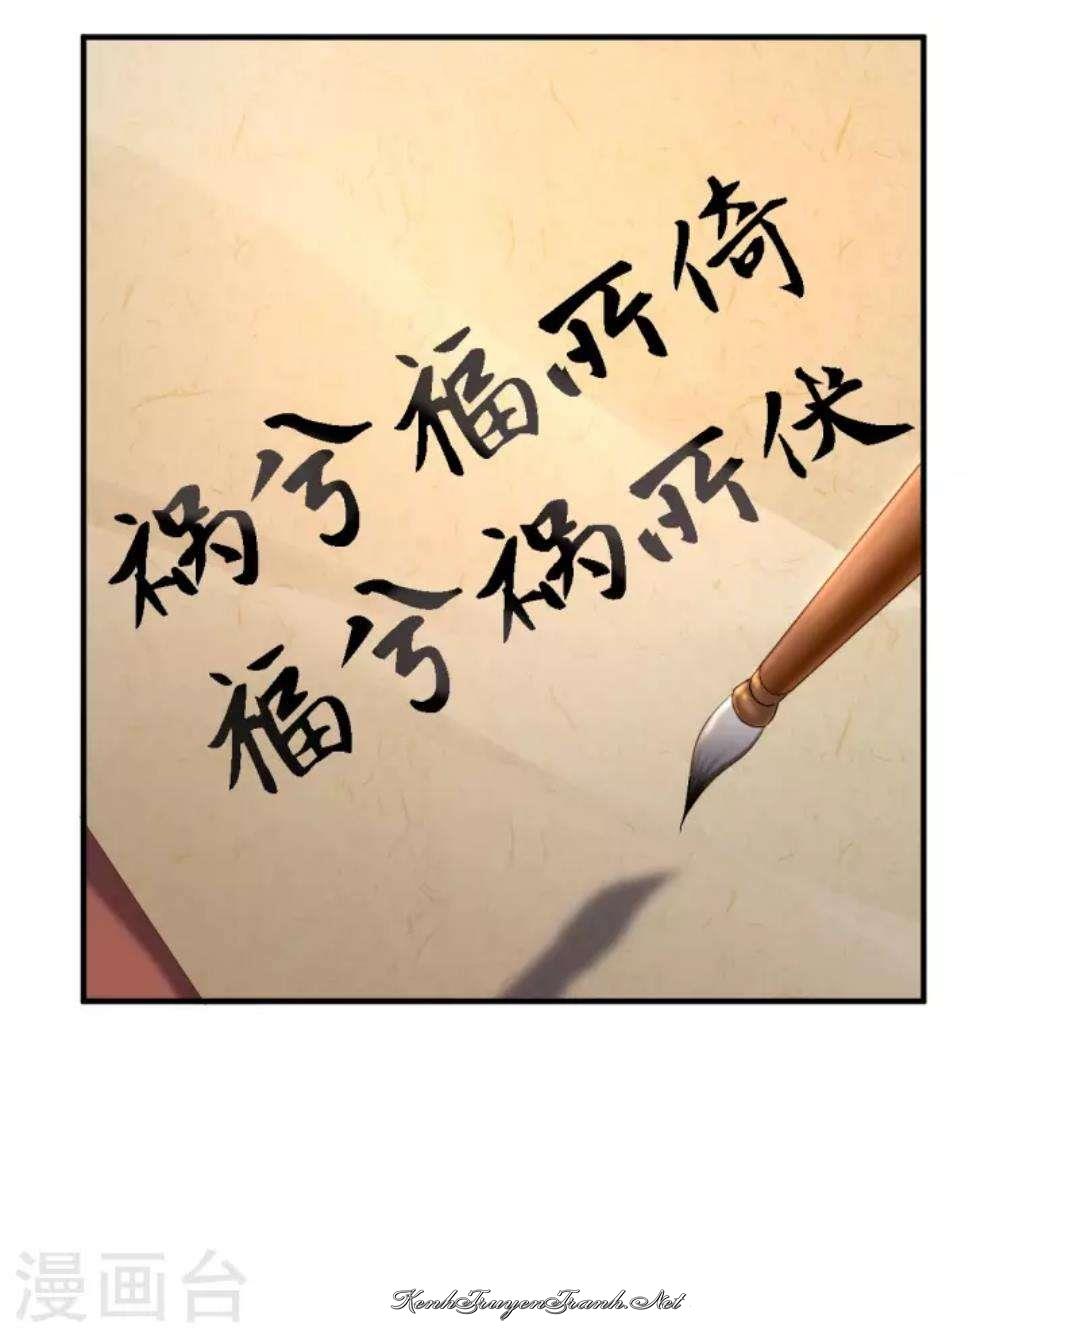 祸兮福所倚
福兮祸所伏
漫画台
KenhTruyenTranh.Net